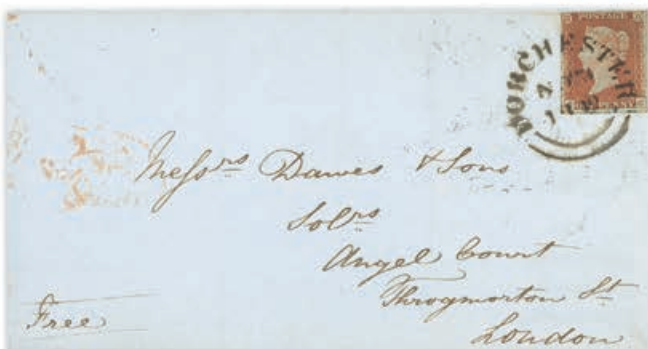 POSTAGE
DORCHESTER
Messrs Dawes & Sons
Solrs
Angel Court
Throgmorton St
London
Free